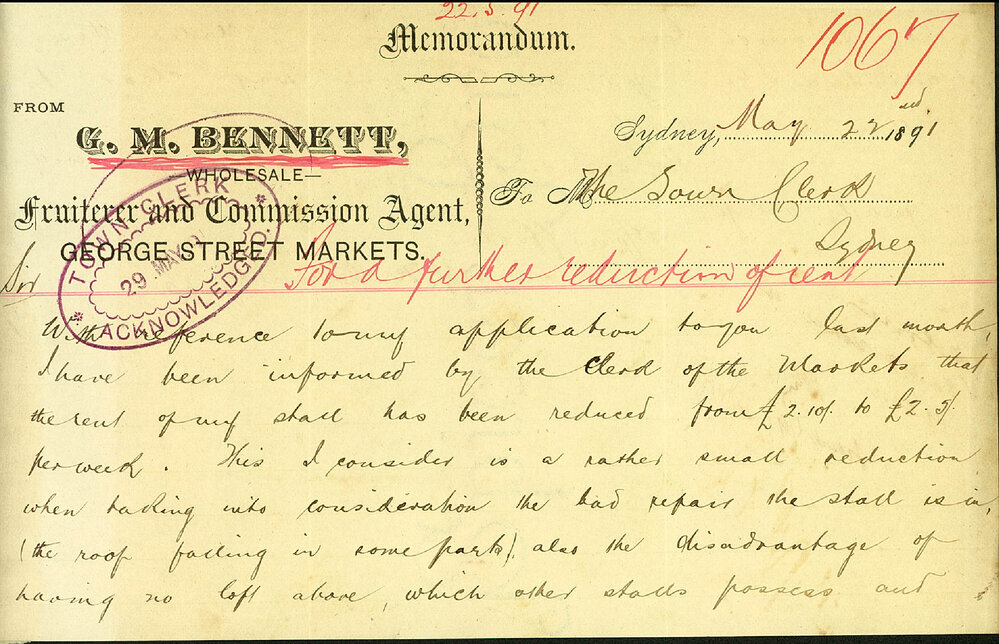 22.5.91
Memorandum.
1067
FROM
G. M. BENNETT,
WHOLESALE—
Fruiterer and Commission Agent,
GEORGE STREET MARKETS.
Sydney, May 22nd. 1891
To The Town Clerk
Sydney
TOWN CLERK
29 MAY 91
ACKNOWLEDGED.
Sir
For a further reduction of rent
With reference to my application to you last month,
I have been informed by the Clerk of the Markets that
the rent of my stall has been reduced from £2.10/. to £2.5/.
per week. This I consider is a rather small reduction
when taking into consideration the bad repair the stall is in,
(the roof falling in some parts), also the disadvantage of
having no loft above, which other stalls possess and